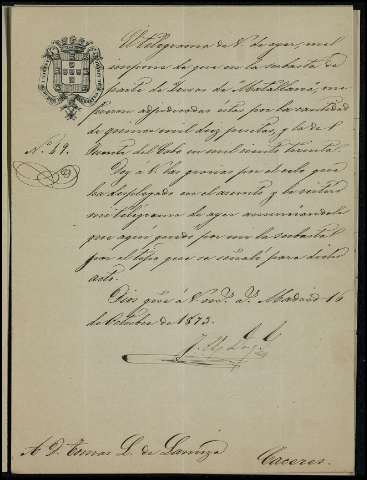 El telegrama de V. de ayer, me
impone de que en la subasta de
pasto de Zonas de Matallana, me
fueron adjudicadas estas por la cantidad
de quince mil diez pesetas, y la de
Fuente del Cabo en mil ciento treinta
Nº 49.
Doy á V. las gracias por el celo que
ha desplegado en el asunto, y le reitero
mi telegrama de ayer anunciandole
que aquí quedó por mi la subasta
por el tipo que se señaló para dicho
acto.
Dios gue á V. ms. as. Madrid 16
de Octubre de 1873.
A D. Tomas L. de Lanuza
Caceres.